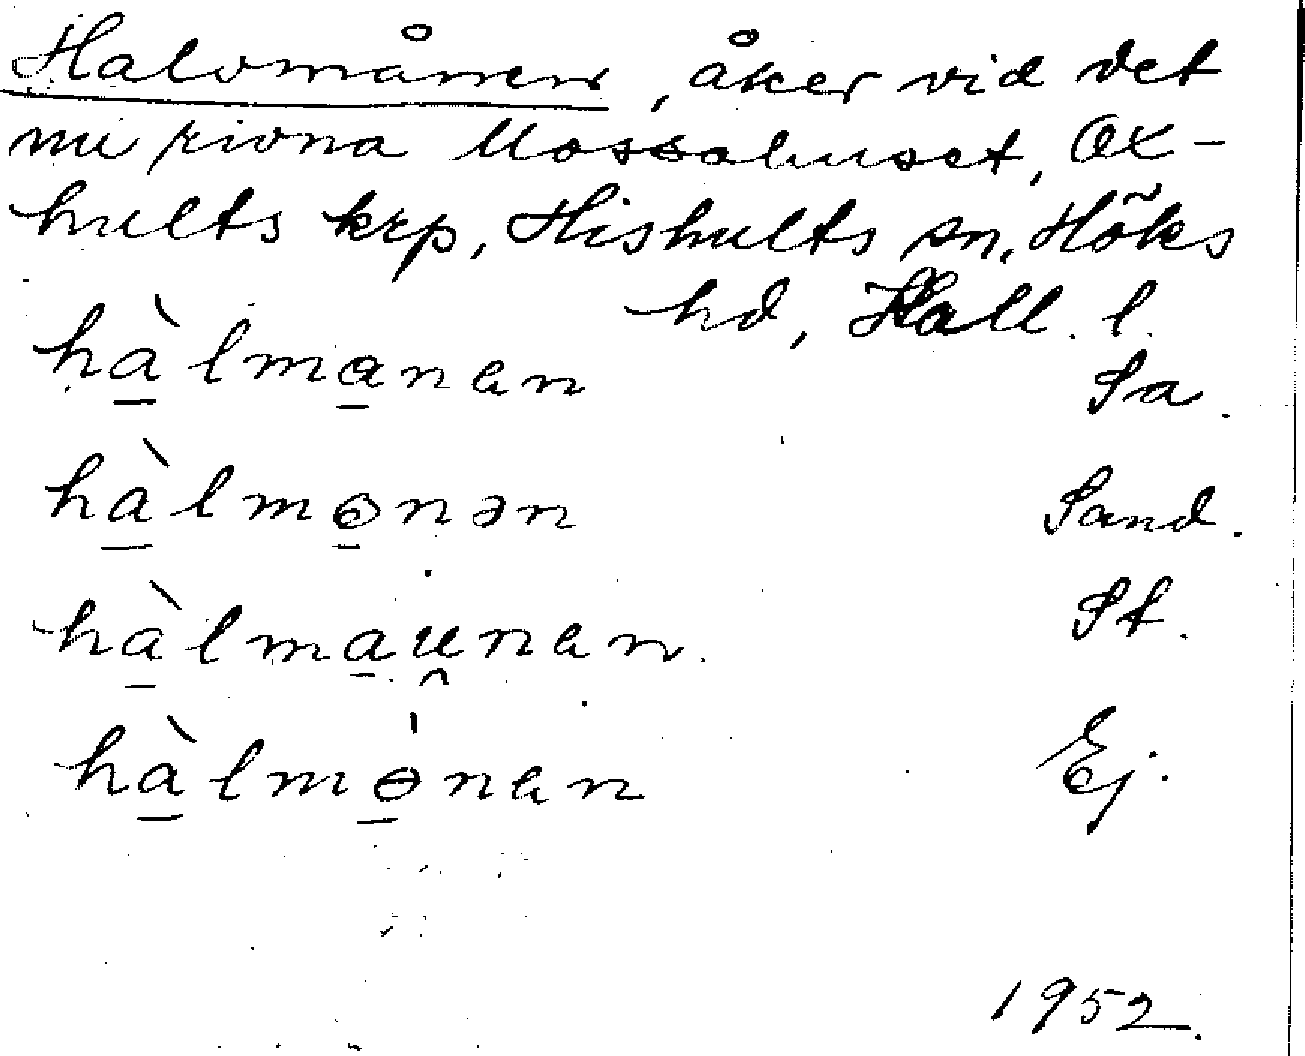 Halvmånen, åker vid det
nu rivna Mossahuset, Ox-
hults krp, Hishults sn, Höks
hd, Hall. l.
hà̱lma̱nan Sa.
hà̱lmɵ̱nən Sand.
hà̱lma̱u̯nan St.
hà̱lmɵ̱́nan Ej.
1952.